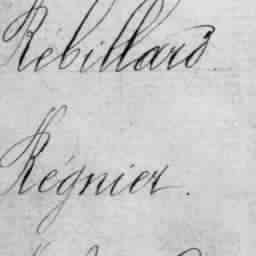 Rébillard
Régnier.